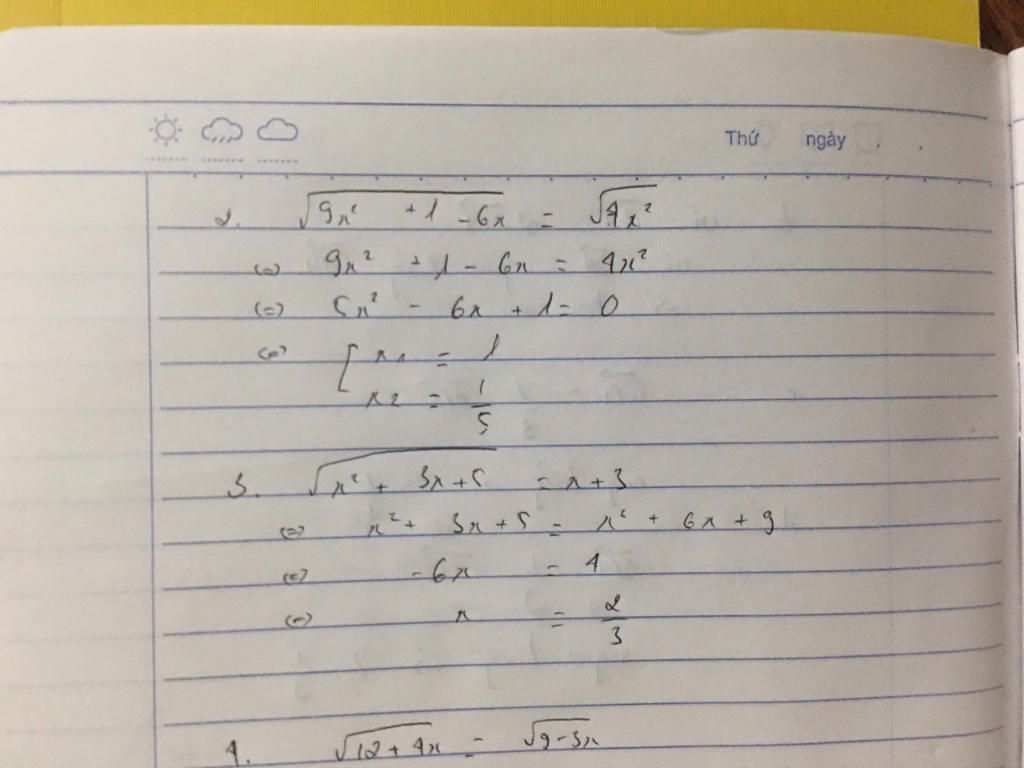 Thứ ngày
2. √(9x² + 1 - 6x) = √(4x²)
(=) 9x² + 1 - 6x = 4x²
(=) 5x² - 6x + 1 = 0
(=) [ x1 = 1
x2 = 1/5
3. √(x² + 3x + 5) = x + 3
(=) x² + 3x + 5 = x² + 6x + 9
(=) -6x = 4
(=) x = 2/3
4. √(12 + 4x) = √(9 - 3x)